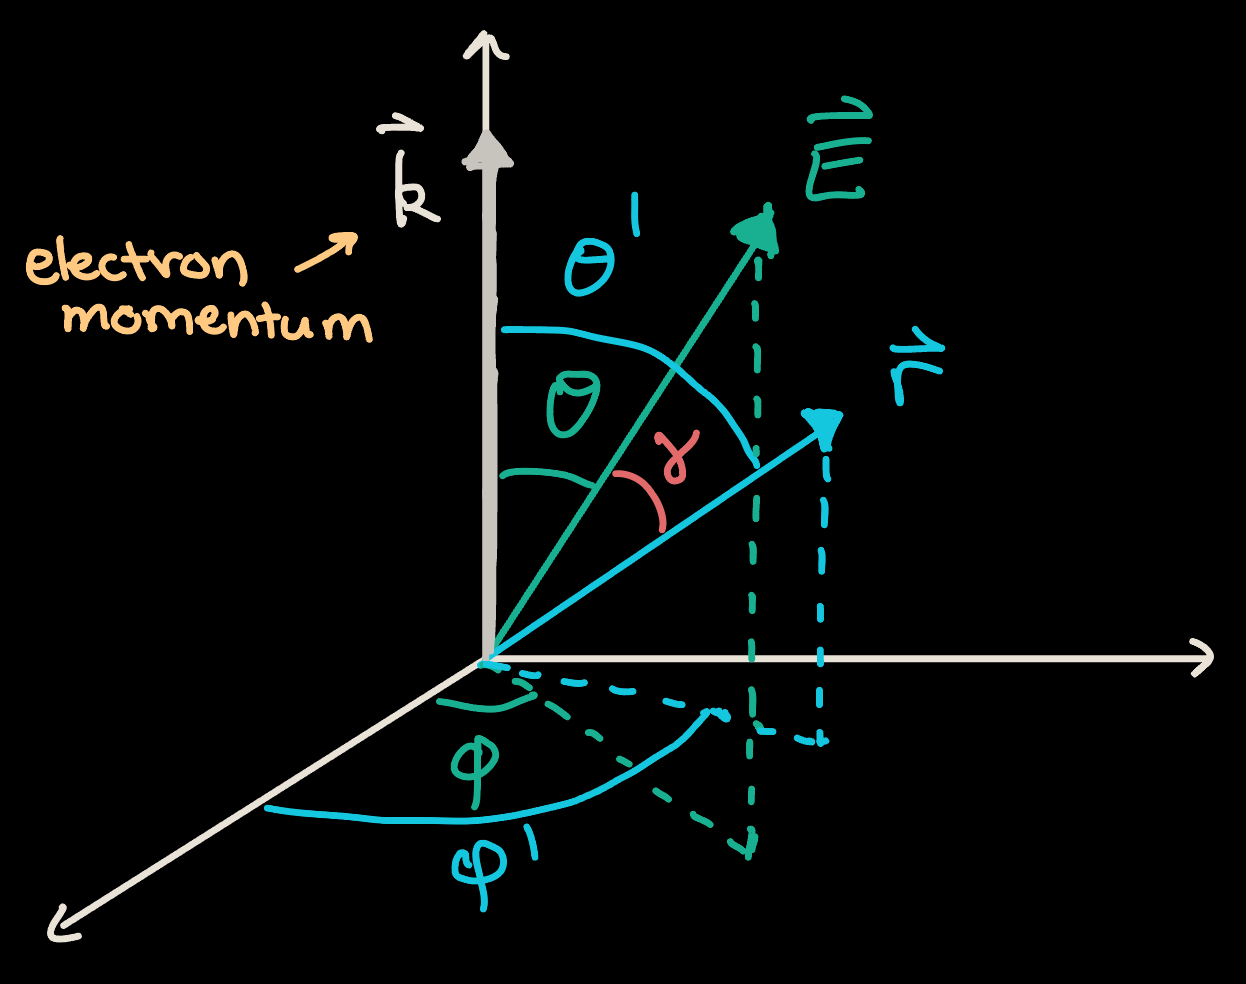 k⃗
E⃗
θ'
electron
momentum
r⃗
θ
γ
φ
φ'